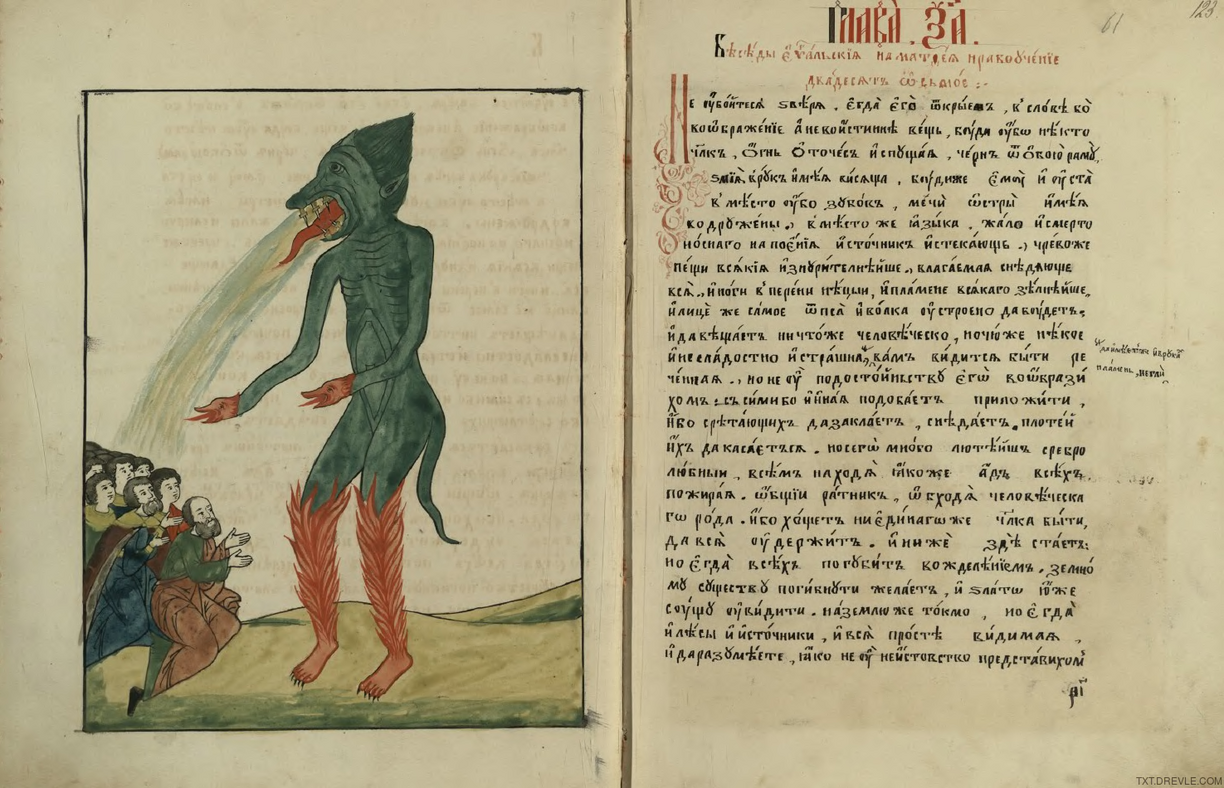 Глава . ѮА . 61 123
Бєсѣды є҆ѵⷢ҇альскїѧ на матѳеѧ нравоꙋче́нїе
двадесѧтъ ѡ҆сьмое :~
Не ᲂу҆бо́йтесѧ ѕвѣ́рѧ . є҆гда̀ є҆го̀ ѿкрыемъ , в̾ сло́вѣ бо̀
воѡбраже́нїе а҆ не во и҆́стиннѣ ве́щь , бꙋ́ди ᲂу҆́бѡ нѣ́кто
чл҃къ , ѻ҆́гнь ѿ ѻ҆че́съ и҆спꙋща́ѧ , че́рнъ ѿ ѻ҆бо́ю рамꙋ̀ ,
ѕмїѧ̀ в̾ рꙋ́къ и҆мѣ́ѧ ви́сѧща , бꙋ́ди же є҆мꙋ̀ и҆ ᲂу҆ста̀
в̾ мѣ́сто ᲂу҆́бо зꙋбо́въ , мечѝ ѡ҆стры̀ и҆мѣ́ѧ
водрꙋже́ны ., в̾ мѣ́сто же ꙗ҆зы́ка , жа́ло и҆ смерто
но́снаго напое́нїѧ и҆сто́чникъ и҆стека́ющь ., чре́во же
пе́щи всѧ́кїѧ и҆знꙋри́телнѣйше ., влага́емаѧ снѣдѧ́юще
всѧ̀ ., и҆ но́ги в̾ пе́рени нѣ́цыи , и҆ пла́мене всѧ́каго ѕѣлнѣ́йше ,
и҆ лице́ же са́мое ѿ пса̀ и҆ во́лка ᲂу҆стро́ено да бꙋ́детъ .
и҆ да вѣща́етъ ничто́же человѣ́ческо , но что́ же нѣ́кое
и҆ не сла́достно и҆ стра́шна , ва́мъ ви́дитсѧ бы́ти ре
че́ннаѧ ., но не ᲂу҆̀ по досто́йньствꙋ є҆гѡ̀ воѡбрази́
хомъ . съ си́ми бо и҆ и҆на́ѧ подоба́етъ приложи́ти ,
и҆́бо срѣта́ющихъ да закла́етъ , снѣда́етъ , плоте́й
и҆́хъ да каса́етъсѧ . но сегѡ̀ мно́го лютѣ́йшъ сребро
лю́бный , всѣ́мъ находѧ̀ ꙗ҆́коже а҆́дъ всѣ́хъ
пожира́ѧ . ѻ҆́бщїи ра́тникъ , ѡ҆бходѧ̀ человѣ́ческа
гѡ ро́да . и҆́бо хо́щетъ ни є҆ди́нагѡ же чл҃ка бы́ти ,
да всѧ̀ ᲂу҆держи́тъ . и҆ нижѐ здѣ̀ ста́етъ :
но є҆гда̀ всѣ́хъ погꙋби́тъ вожделѣ́нїемъ , земно́
мꙋ сꙋществꙋ̀ поги́бнꙋти жела́етъ , и҆ ѕла́тꙋ ю҆́же
сꙋ́щꙋ ᲂу҆ви́дити . на зе́млю же то́кмо , но є҆гда̀
и҆ лѣ́сы и҆ и҆сто́чники , и҆ всѧ̀ про́стѣ ви́димаѧ ,
и҆ да разꙋмѣ́ете , ꙗ҆́ко не ᲂу҆̀ неи́стовство предста́вихомъ
TXT.DREVLE.COM